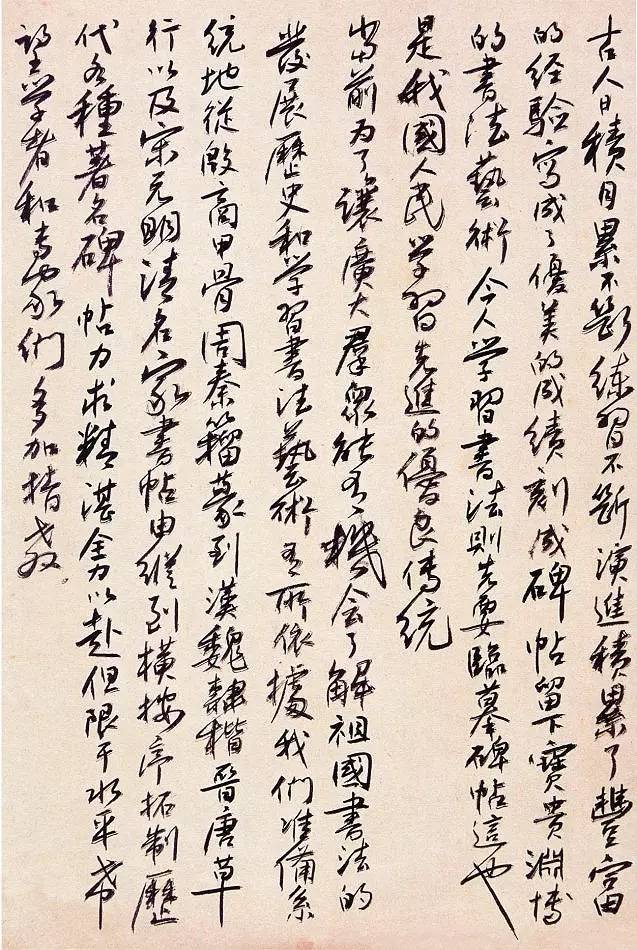 古人日積月累不斷練習不斷演進積累了豐富
的經驗寫成了優美的成績刻成碑帖留下寶貴淵博
的書法藝術今人学習書法則先要臨摹碑帖這也
是我國人民学習先進的優良傳統
當前为了讓廣大羣衆能有機会了解祖國書法的
發展歷史和学習書法藝術有所依據我們准備系
統地從殷商甲骨周秦籀篆到漢魏隸楷晉唐草
行以及宋元明清名家書帖由縱到橫按序拓制歷
代各種著名碑帖力求精湛全力以赴但限于水平希
望学者和專家们多加指教